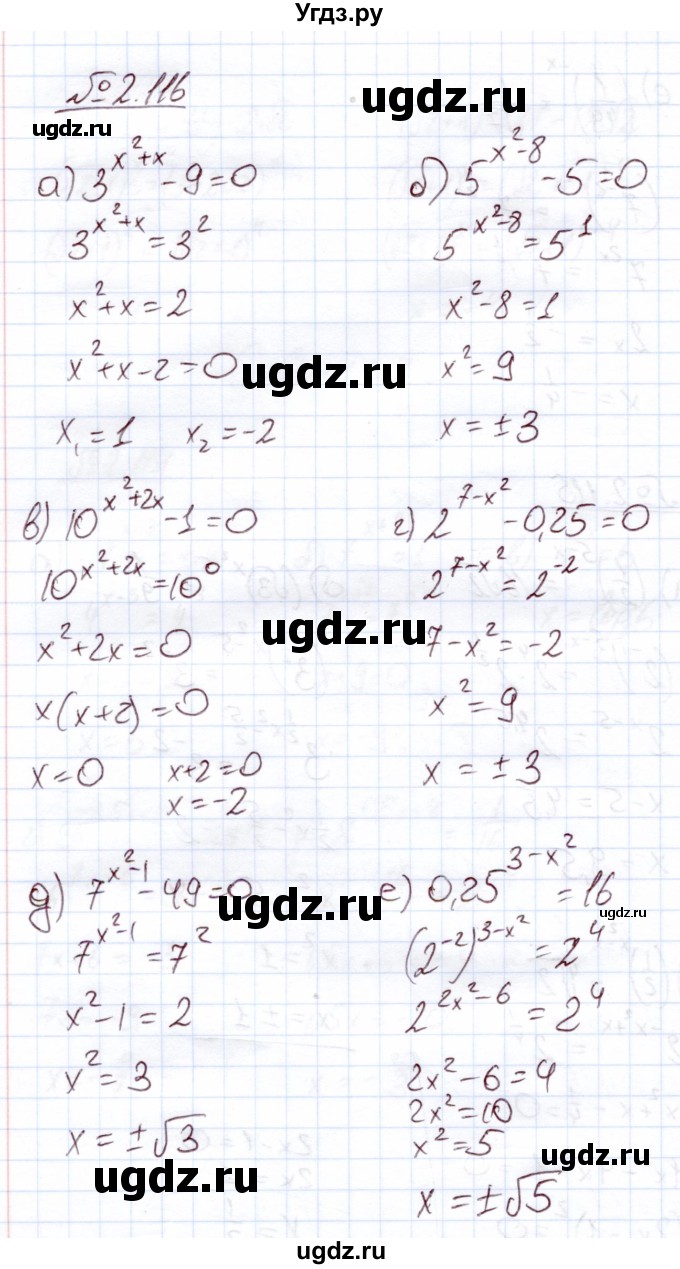 Угдз.ру
№2.116
ugdz.ru
ugdz.ru
а) 3^(x²+x) - 9 = 0
3^(x²+x) = 3²
x²+x = 2
x²+x-2 = 0
x₁ = 1   x₂ = -2
б) 5^(x²-8) - 5 = 0
5^(x²-8) = 5¹
x²-8 = 1
x² = 9
x = ±3
ugdz.ru
в) 10^(x²+2x) - 1 = 0
10^(x²+2x) = 10⁰
x²+2x = 0
x(x+2) = 0
x = 0   x+2 = 0
x = -2
г) 2^(7-x²) - 0,25 = 0
2^(7-x²) = 2^(-2)
7-x² = -2
x² = 9
x = ±3
ugdz.ru
д) 7^(x²-1) - 49 = 0
7^(x²-1) = 7²
x²-1 = 2
x² = 3
x = ±√3
е) 0,25^(3-x²) = 16
(2^(-2))^(3-x²) = 2⁴
2^(2x²-6) = 2⁴
2x²-6 = 4
2x² = 10
x² = 5
x = ±√5
ugdz.ru
ugdz.ru
ugdz.ru
ugdz.ru
ugdz.ru